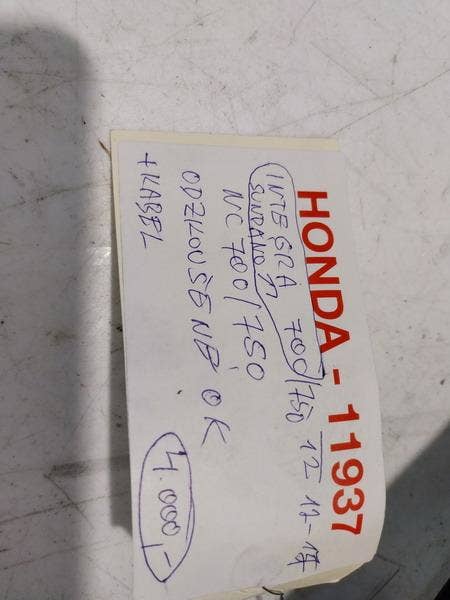 HONDA - 11937
INTEGRA 700/750 12-17
SUNDANO Z
NC 700/750
ODZKOUŠENÉ OK
+KABEL
4.000,-